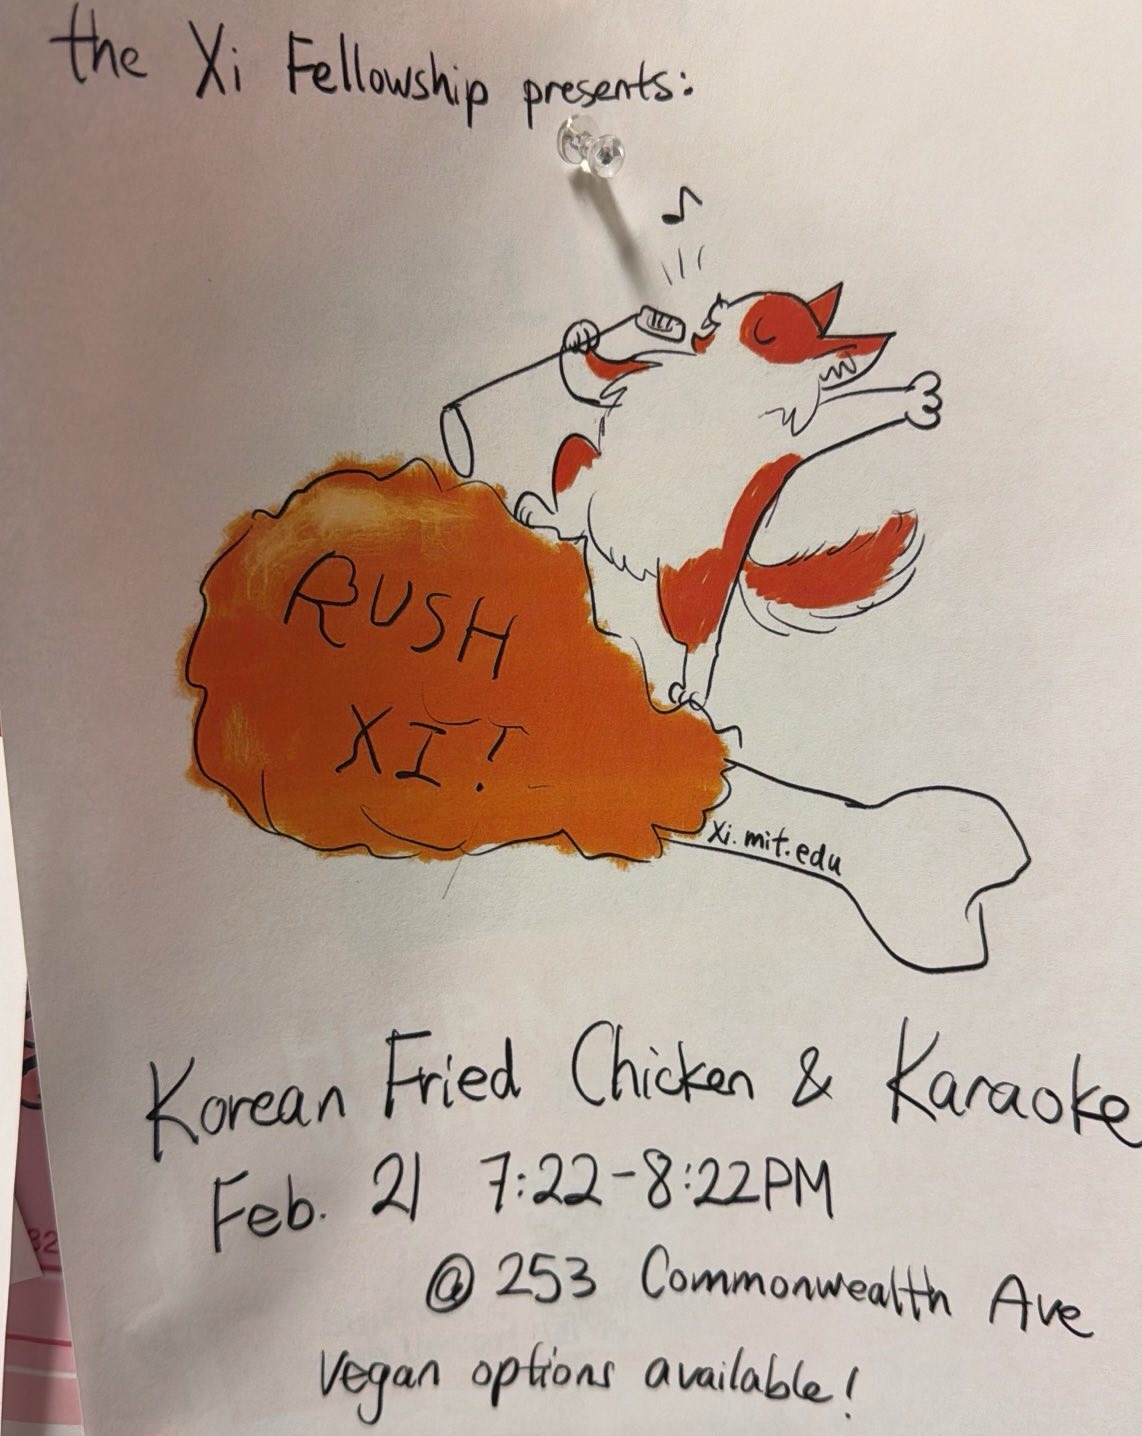 the Xi Fellowship presents:
RUSH
XI!
xi.mit.edu
Korean Fried Chicken & Karaoke
Feb. 21 7:22-8:22PM
@ 253 Commonwealth Ave
vegan options available!
32